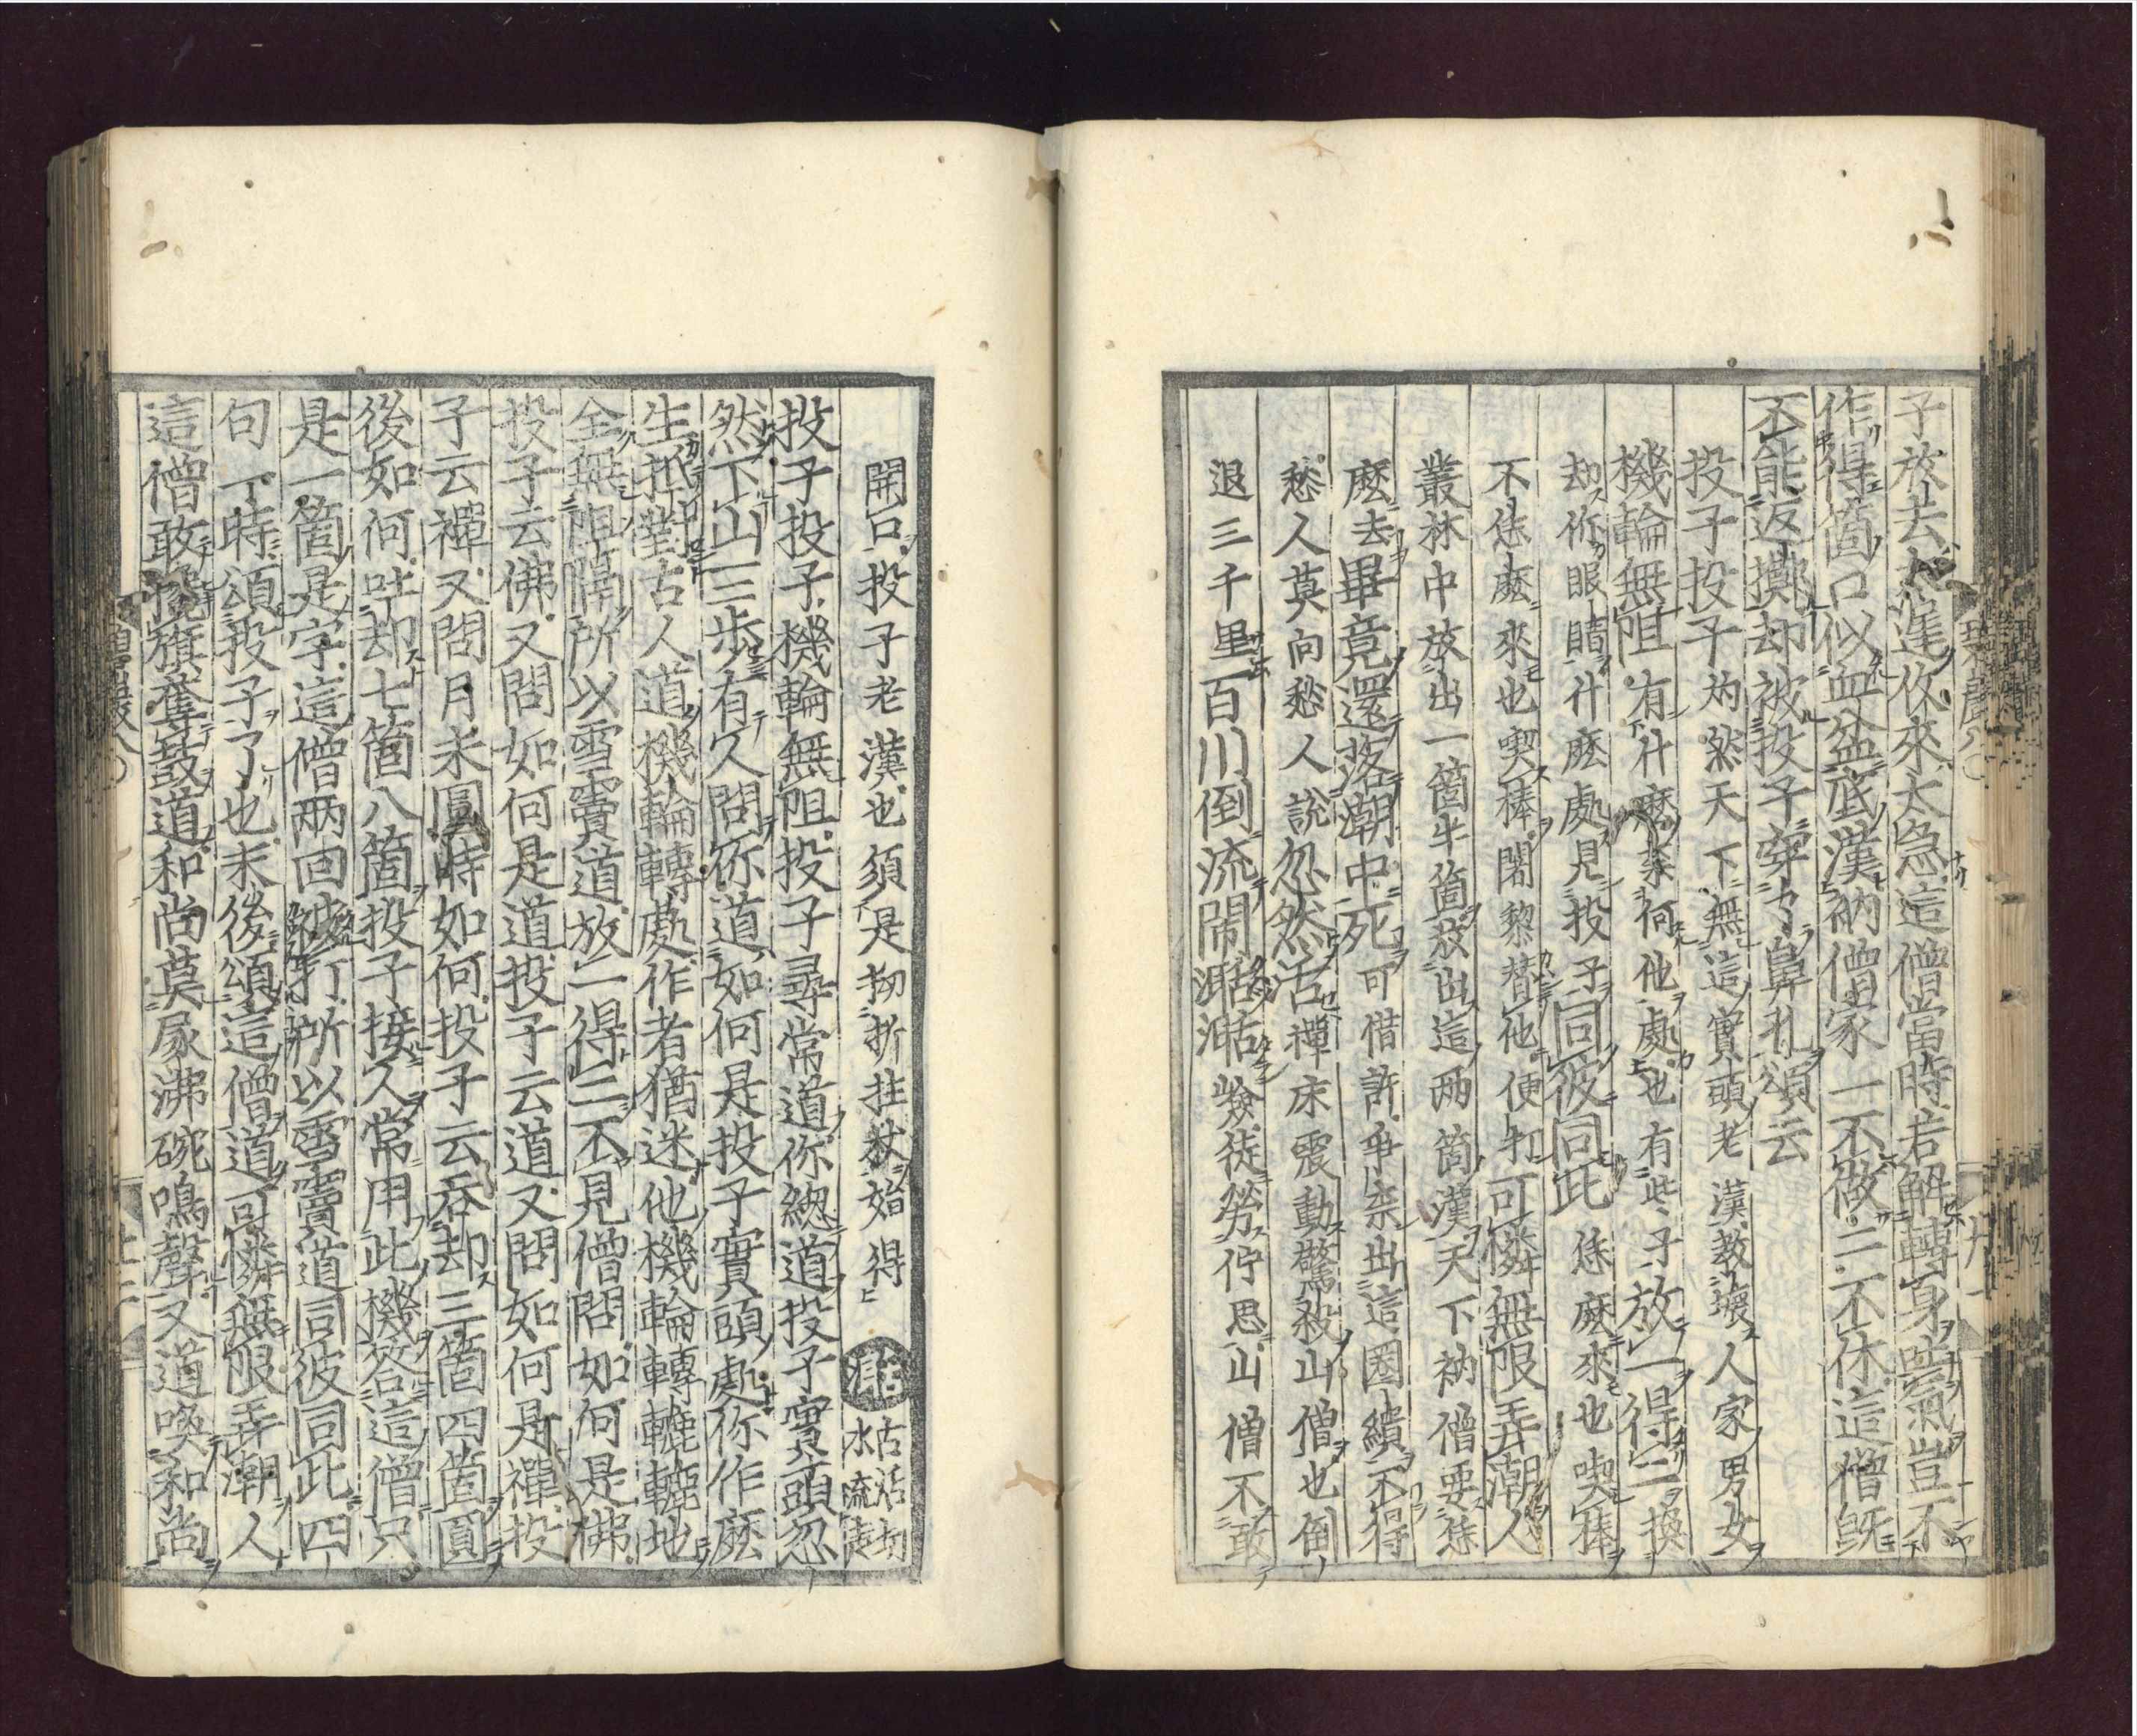 子放去太遲你來太急這僧當時若解轉身吐氣豈不
作得箇口似血盆底漢衲僧家一不做二不休這僧既
不能返擲却被投子穿了鼻孔頌云
投子投子灼然天下無這實頭老漢教壞人家男女
機輪無阻有什麼奈何他處也有些子放一得二換
却你眼睛什麼處見投子同彼同此恁麼來也喫棒
不恁麼來也喫棒闍黎替他便打可憐無限弄潮人
叢林中放出一箇半箇放出這兩箇漢天下衲僧要恁
麼去畢竟還落潮中死可惜許爭奈出這圈繢不得
愁人莫向愁人說忽然活禪床震動驚殺山僧也倒
退三千里百川倒流鬧聒聒嶮徒勞佇思山僧不敢
碧巖八〇
十一
開口投子老漢也須是拗折拄杖始得
投子投子機輪無阻投子尋常道你總道投子實頭忽
然下山三步有人問你道如何是投子實頭處你作麼
生抵對古人道機輪轉處作者猶迷他機輪轉轆轆地
全無阻隔所以雪竇道放一得二不見僧問如何是佛
投子云佛又問如何是道投子云道又問如何是禪投
子云禪又問月未圓時如何投子云吞却三箇四箇圓
後如何吐却七箇八箇投子接人常用此機答這僧只
是一箇是字這僧兩回被打所以雪竇道同彼同此四
句一時頌投子了也末後頌這僧道可憐無限弄潮人
這僧敢攙旗奪鼓道和尚莫𡱰沸碗鳴聲又道喚和尚